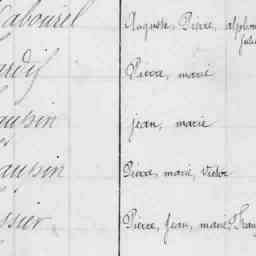 Cabourel Auguste, Pierre, alphon
Julie
ardif Pierre, marie
aupin jean, marie
aupin Pierre, marie, Victor
ssier Pierre, Jean, marie, Franç